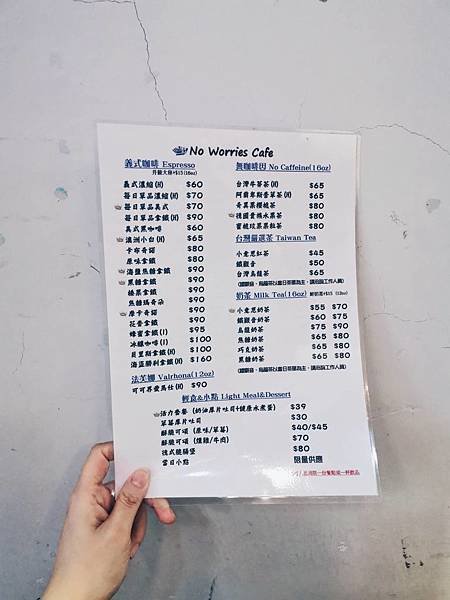 No Worries Cafe
義式咖啡 Espresso
升級大杯+$15(16oz)
義式濃縮(H) $60
每日單品濃縮(H) $70
每日單品美式 $70
每日單品拿鐵(H) $90
美式黑咖啡 $60
澳洲小白(H) $65
卡布奇諾 $80
原味拿鐵 $80
海鹽焦糖拿鐵 $90
黑糖拿鐵 $90
榛果拿鐵 $90
焦糖瑪奇朵 $90
摩卡奇諾 $90
花香拿鐵 $90
蜂蜜拿鐵(I) $95
冰釀咖啡(I) $100
貝里斯拿鐵(H) $100
海盜勝利拿鐵(H) $160
法芙娜 Valrhona(12oz)
可可界愛馬仕(H) $90
無咖啡因 No Caffeine(16oz)
台灣牛蒡茶(H) $65
阿爾卑斯香草茶(H) $65
奇異果櫻桃茶 $80
德國森林水果茶 $80
蜜桃玫果果粒茶 $80
台灣嚴選茶 Taiwan Tea
小意思紅茶 $45
鐵觀音 $50
台灣烏龍茶 $65
奶茶 Milk Tea(16oz) 鮮奶茶+$15 (12oz)
小意思奶茶 $55 $70
鐵觀音奶茶 $60 $75
烏龍奶茶 $75 $90
焦糖奶茶 $65 $80
巧克奶茶 $65 $80
黑糖奶茶 $65 $80
輕食&小點 Light Meal&Dessert
活力套餐 (奶油厚片吐司+健康水煮蛋) $39
草莓厚片吐司 $30
酥脆可頌 (原味/草莓) $40/$45
酥脆可頌 (燻雞/牛肉) $70
德式脆腸堡 $80
當日小點 限量供應